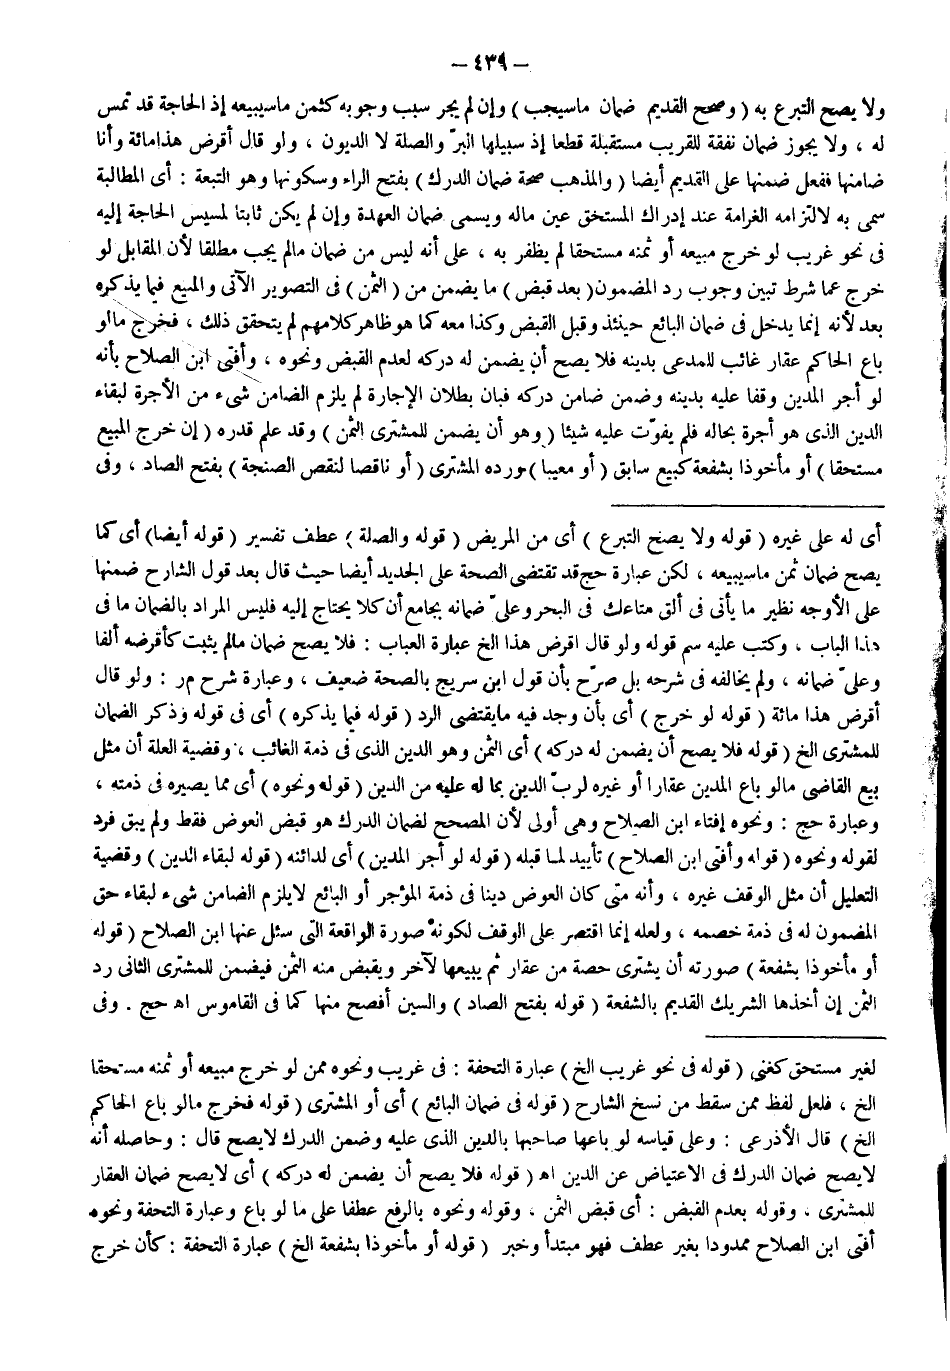 – ٤٣٩ –
ولا يصح التبرع به ( وصحح القديم ضمان ماسيجب ) وإن لم يجر سبب وجوبه كثمن ماسيبيعه إذ الحاجة قد تمس
له ، ولا يجوز ضمان نفقة للقريب مستقبلة قطعا إذ سبيلها البرّ والصلة لا الديون ، ولو قال أقرض هذامائة وأنا
ضامنها ففعل ضمنها على القديم أيضا ( والمذهب صحة ضمان الدرك ) بفتح الراء وسكونها وهو التبعة : أى المطالبة
سمى به لالتزامه الغرامة عند إدراك المستحق عين ماله ويسمى ضمان العهدة وإن لم يكن ثابتا لمسيس الحاجة إليه
فى نحو غريب لو خرج مبيعه أو ثمنه مستحقا لم يظفر به ، على أنه ليس من ضمان مالم يجب مطلقا لأن المقابل لو
خرج عما شرط تبين وجوب رد المضمون( بعد قبض ) ما يضمن من ( الثمن ) فى التصوير الآتى والمبيع فيما يذكره
بعد لأنه إنما يدخل فى ضمان البائع حينئذ وقبل القبض وكذا معه كما هوظاهركلامهم لم يتحقق ذلك ، فخرج مالو
باع الحاكم عقار غائب للمدعى بدينه فلا يصح أن يضمن له دركه لعدم القبض ونحوه ، وأفتى ابن الصلاح بأنه
لو أجر المدين وقفا عليه بدينه وضمن ضامن دركه فبان بطلان الإجارة لم يلزم الضامن شىء من الأجرة لبقاء
الدين الذى هو أجرة بحاله فلم يفوّت عليه شيئا ( وهو أن يضمن للمشترى الثمن ) وقد علم قدره ( إن خرج المبيع
مستحقا ) أو مأخوذا بشفعة كبيع سابق ( أو معيبا ) ورده المشترى ( أو ناقصا لنقص الصنجة ) بفتح الصاد ، وفى
أى له على غيره ( قوله ولا يصح التبرع ) أى من المريض ( قوله والصلة ) عطف تفسير ( قوله أيضا) أى كما
يصح ضمان ثمن ماسيبيعه ، لكن عبارة حج قد تقتضى الصحة على الجديد أيضا حيث قال بعد قول الشارح ضمنها
على الأوجه نظير ما يأتى فى ألق متاعك فى البحر وعلىّ ضمانه بجامع أن كلا يحتاج إليه فليس المراد بالضمان ما فى
هذا الباب ، وكتب عليه سم قوله ولو قال اقرض هذا الخ عبارة العباب : فلا يصح ضمان مالم يثبت كأقرضه ألفا
وعلىّ ضمانه ، ولم يخالفه فى شرحه بل صرّح بأن قول ابن سريج بالصحة ضعيف ، وعبارة شرح م ر : ولو قال
أقرض هذا مائة ( قوله لو خرج ) أى بأن وجد فيه مايقتضى الرد ( قوله فيما يذكره ) أى فى قوله وذكر الضمان
للمشترى الخ ( قوله فلا يصح أن يضمن له دركه ) أى الثمن وهو الدين الذى فى ذمة الغائب ، وقضية العلة أن مثل
بيع القاضى مالو باع المدين عقارا أو غيره لربّ الدين بما له عليه من الدين ( قوله ونحوه ) أى مما يصيره فى ذمته ،
وعبارة حج : ونحوه إفتاء ابن الصلاح وهى أولى لأن المصحح لضمان الدرك هو قبض العوض فقط ولم يبق فرد
لقوله ونحوه ( قوله وأفتى ابن الصلاح ) تأييد لما قبله ( قوله لو أجر المدين ) أى لدائنه ( قوله لبقاء الدين ) وقضية
التعليل أن مثل الوقف غيره ، وأنه متى كان العوض دينا فى ذمة المؤجر أو البائع لايلزم الضامن شىء لبقاء حق
المضمون له فى ذمة خصمه ، ولعله إنما اقتصر على الوقف لكونه صورة الواقعة التى سئل عنها ابن الصلاح ( قوله
أو مأخوذا بشفعة ) صورته أن يشترى حصة من عقار ثم يبيعها لآخر ويقبض منه الثمن فيضمن للمشترى الثانى رد
الثمن إن أخذها الشريك القديم بالشفعة ( قوله بفتح الصاد ) والسين أفصح منها كما فى القاموس اه حج . وفى
لغير مستحق كغنى ( قوله فى نحو غريب الخ ) عبارة التحفة : فى غريب ونحوه ممن لو خرج مبيعه أو ثمنه مستحقا
الخ ، فلعل لفظ ممن سقط من نسخ الشارح ( قوله فى ضمان البائع ) أى أو المشترى ( قوله فخرج مالو باع الحاكم
الخ ) قال الأذرعى : وعلى قياسه لو باعها صاحبها بالدين الذى عليه وضمن الدرك لايصح قال : وحاصله أنه
لايصح ضمان الدرك فى الاعتياض عن الدين اه ( قوله فلا يصح أن يضمن له دركه ) أى لايصح ضمان العقار
للمشترى ، وقوله بعدم القبض : أى قبض الثمن ، وقوله ونحوه بالرفع عطفا على ما لو باع وعبارة التحفة ونحوه
أفتى ابن الصلاح ممدودا بغير عطف فهو مبتدأ وخبر ( قوله أو مأخوذا بشفعة الخ ) عبارة التحفة : كأن خرج